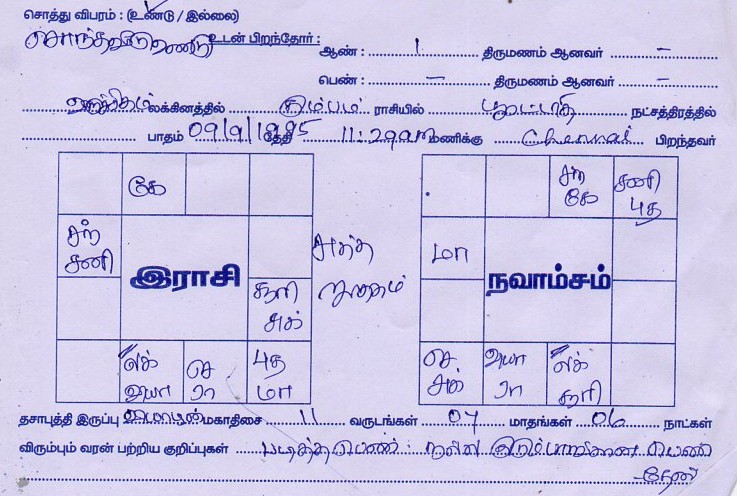 சொத்து விபரம் : (உண்டு / இல்லை)
சொந்தவீடு உண்டு உடன் பிறந்தோர் : ஆண் : 1 திருமணம் ஆனவர் –
பெண் : – திருமணம் ஆனவர் –
லக்கினத்தில் கும்பம் ராசியில் பூரட்டாதி நட்சத்திரத்தில்
பாதம் 09/9/1995 தேதி 11:29am மணிக்கு Chennai பிறந்தவர்
கே
சந்
சனி
இராசி
சூரி
சுக்
லக்
வியா
செ
ரா
புத
மா
சுத்த
ஜாதகம்
சந்
கே
சனி
புத
மா
நவாம்சம்
செ
சுக்
வியா
ரா
லக்
சூரி
தசாபுத்தி இருப்பு வியாழன் மகாதிசை 11 வருடங்கள் 07 மாதங்கள் 06 நாட்கள்
விரும்பும் வரன் பற்றிய குறிப்புகள் படித்த பெண் நல்ல குடும்பமான பெண்
தேவை